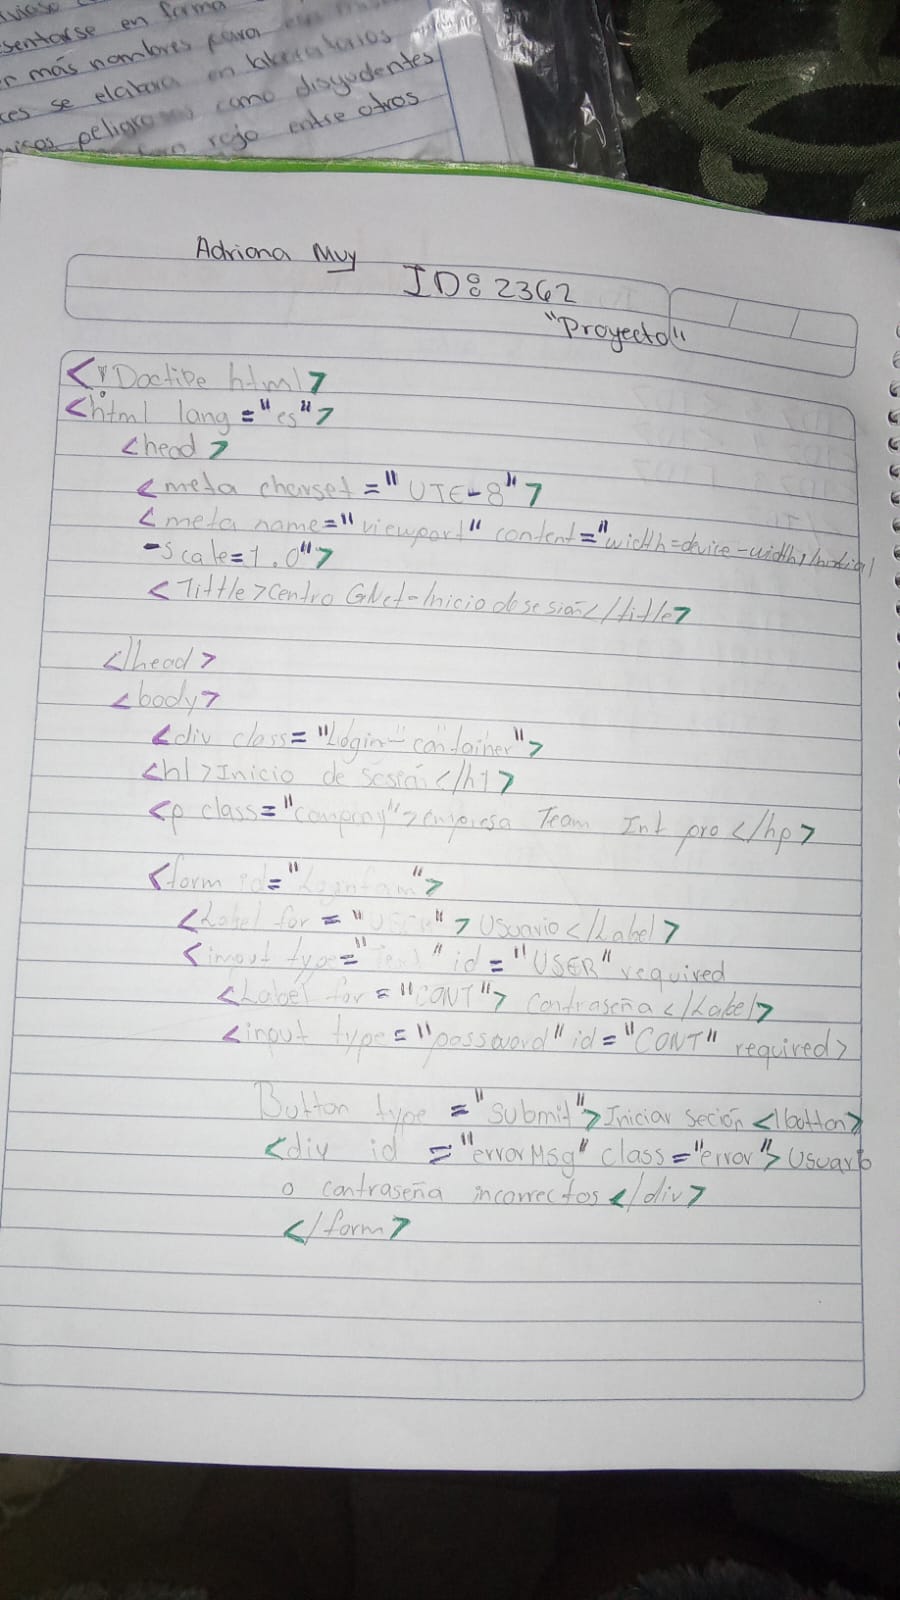 sentarse en forma
más nombres para
ces se elabora en laboratorios
peligro como disyudentes
rojo entre otros
Adriana Muy
ID: 2362
"Proyecto"
<!DoctiPe html>
<html lang="es">
<head>
<meta charset="UTF-8">
<meta name="viewport" content="width=device-width, Inicial
-scale=1.0">
<Tittle>Centro GNet-Inicio de sesión</title>
</head>
<body>
<div class="Login-container">
<h1>Inicio de sesión</h1>
<p class="company">empresa Team Int pro</hp>
<form id="Loginfom">
<Label for="USER">Usuario</Label>
<input type="Text" id="USER" required
<Label for="CONT">Contraseña</Label>
<input type="password" id="CONT" required>
Button type="submit">Iniciar seción</botton>
<div id="errorMsg" class="error">Usuario
o contraseña incorrectos</div>
</form>